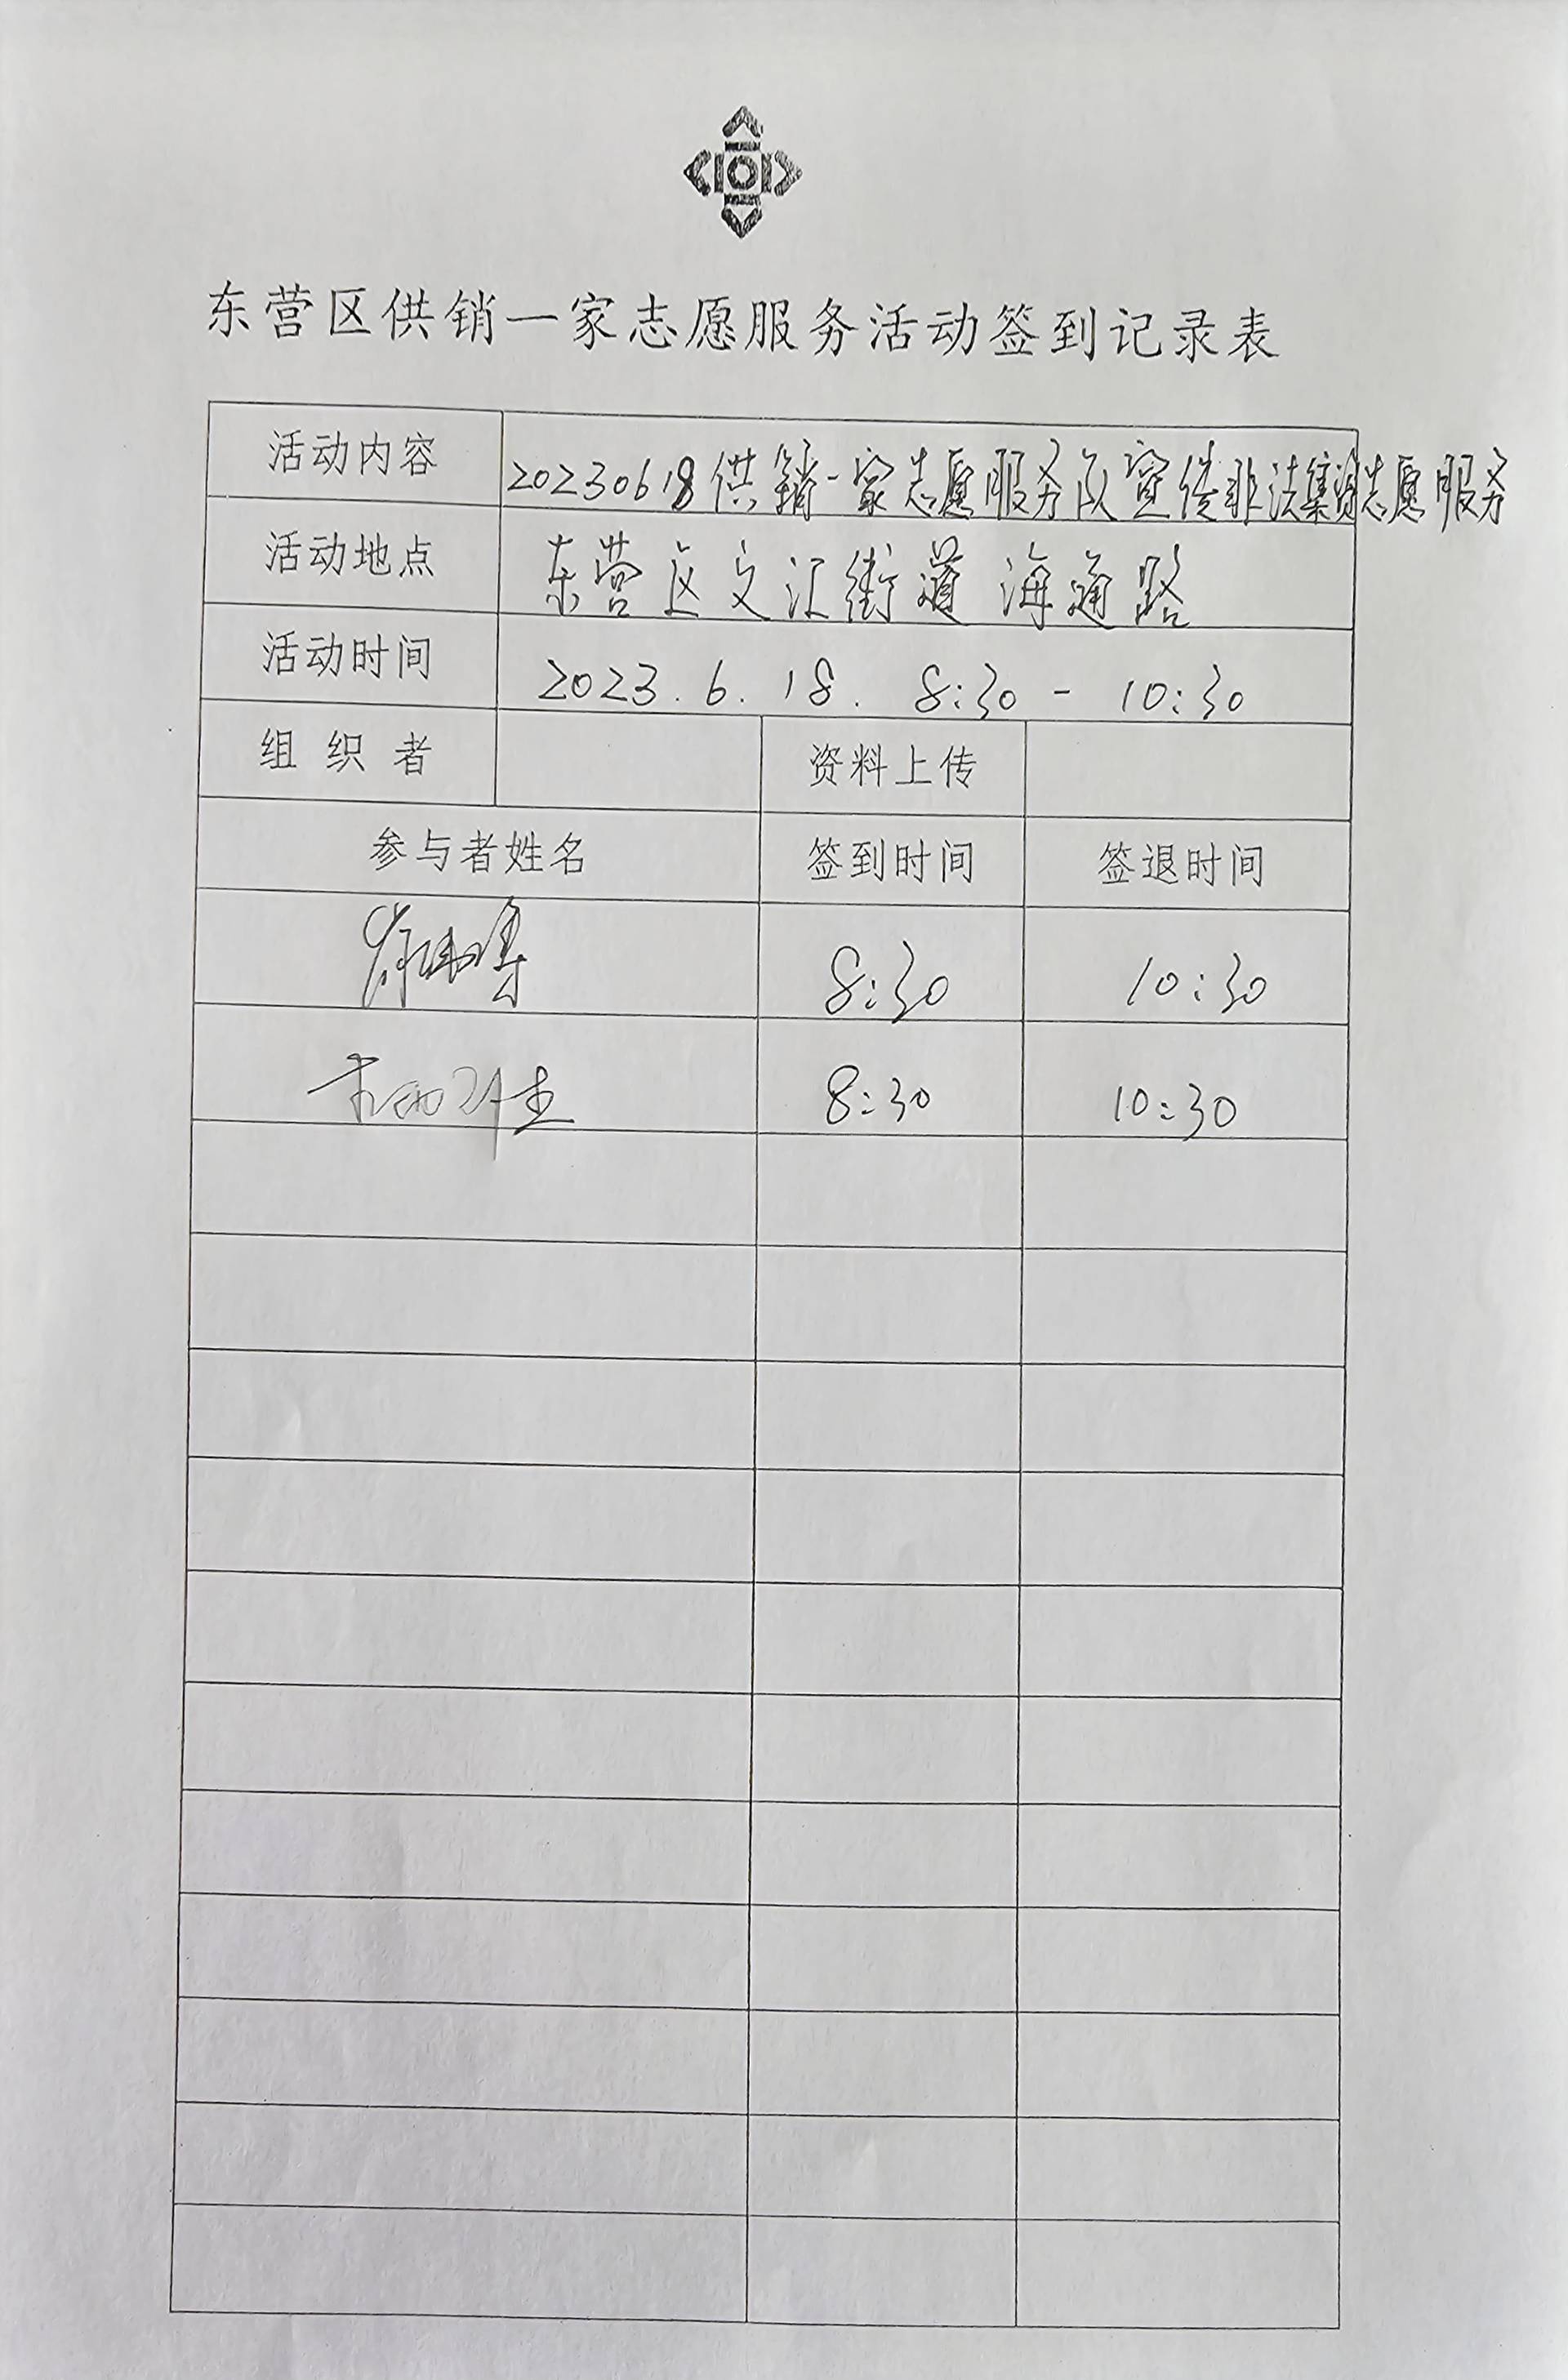 东营区供销一家志愿服务活动签到记录表
活动内容 20230618供销一家志愿服务队宣传非法集资志愿服务
活动地点 东营区文汇街道海通路
活动时间 2023.6.18. 8:30 - 10:30
组织者 资料上传
参与者姓名 签到时间 签退时间
8:30 10:30
8:30 10:30